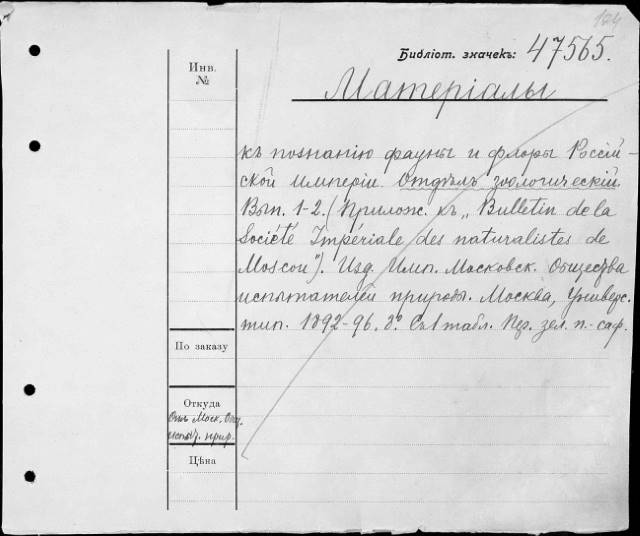 124
Библіот. значекъ: 47565.
Инв.
№
Матеріалы
къ познанію фауны и флоры Россій-
ской имперіи. Отдѣлъ зоологическій.
Вып. 1-2. (Прилож. къ „Bulletin de la
Société Impériale des naturalistes de
Moscou"). Изд. Имп. Московск. Общества
испытателей природы. Москва, Универс.
тип. 1892-96. 8º. Съ 1 табл. Пер. зел. п.-саф.
По заказу
Откуда
Отъ Моск. Общ.
испыт. прир.
Цѣна